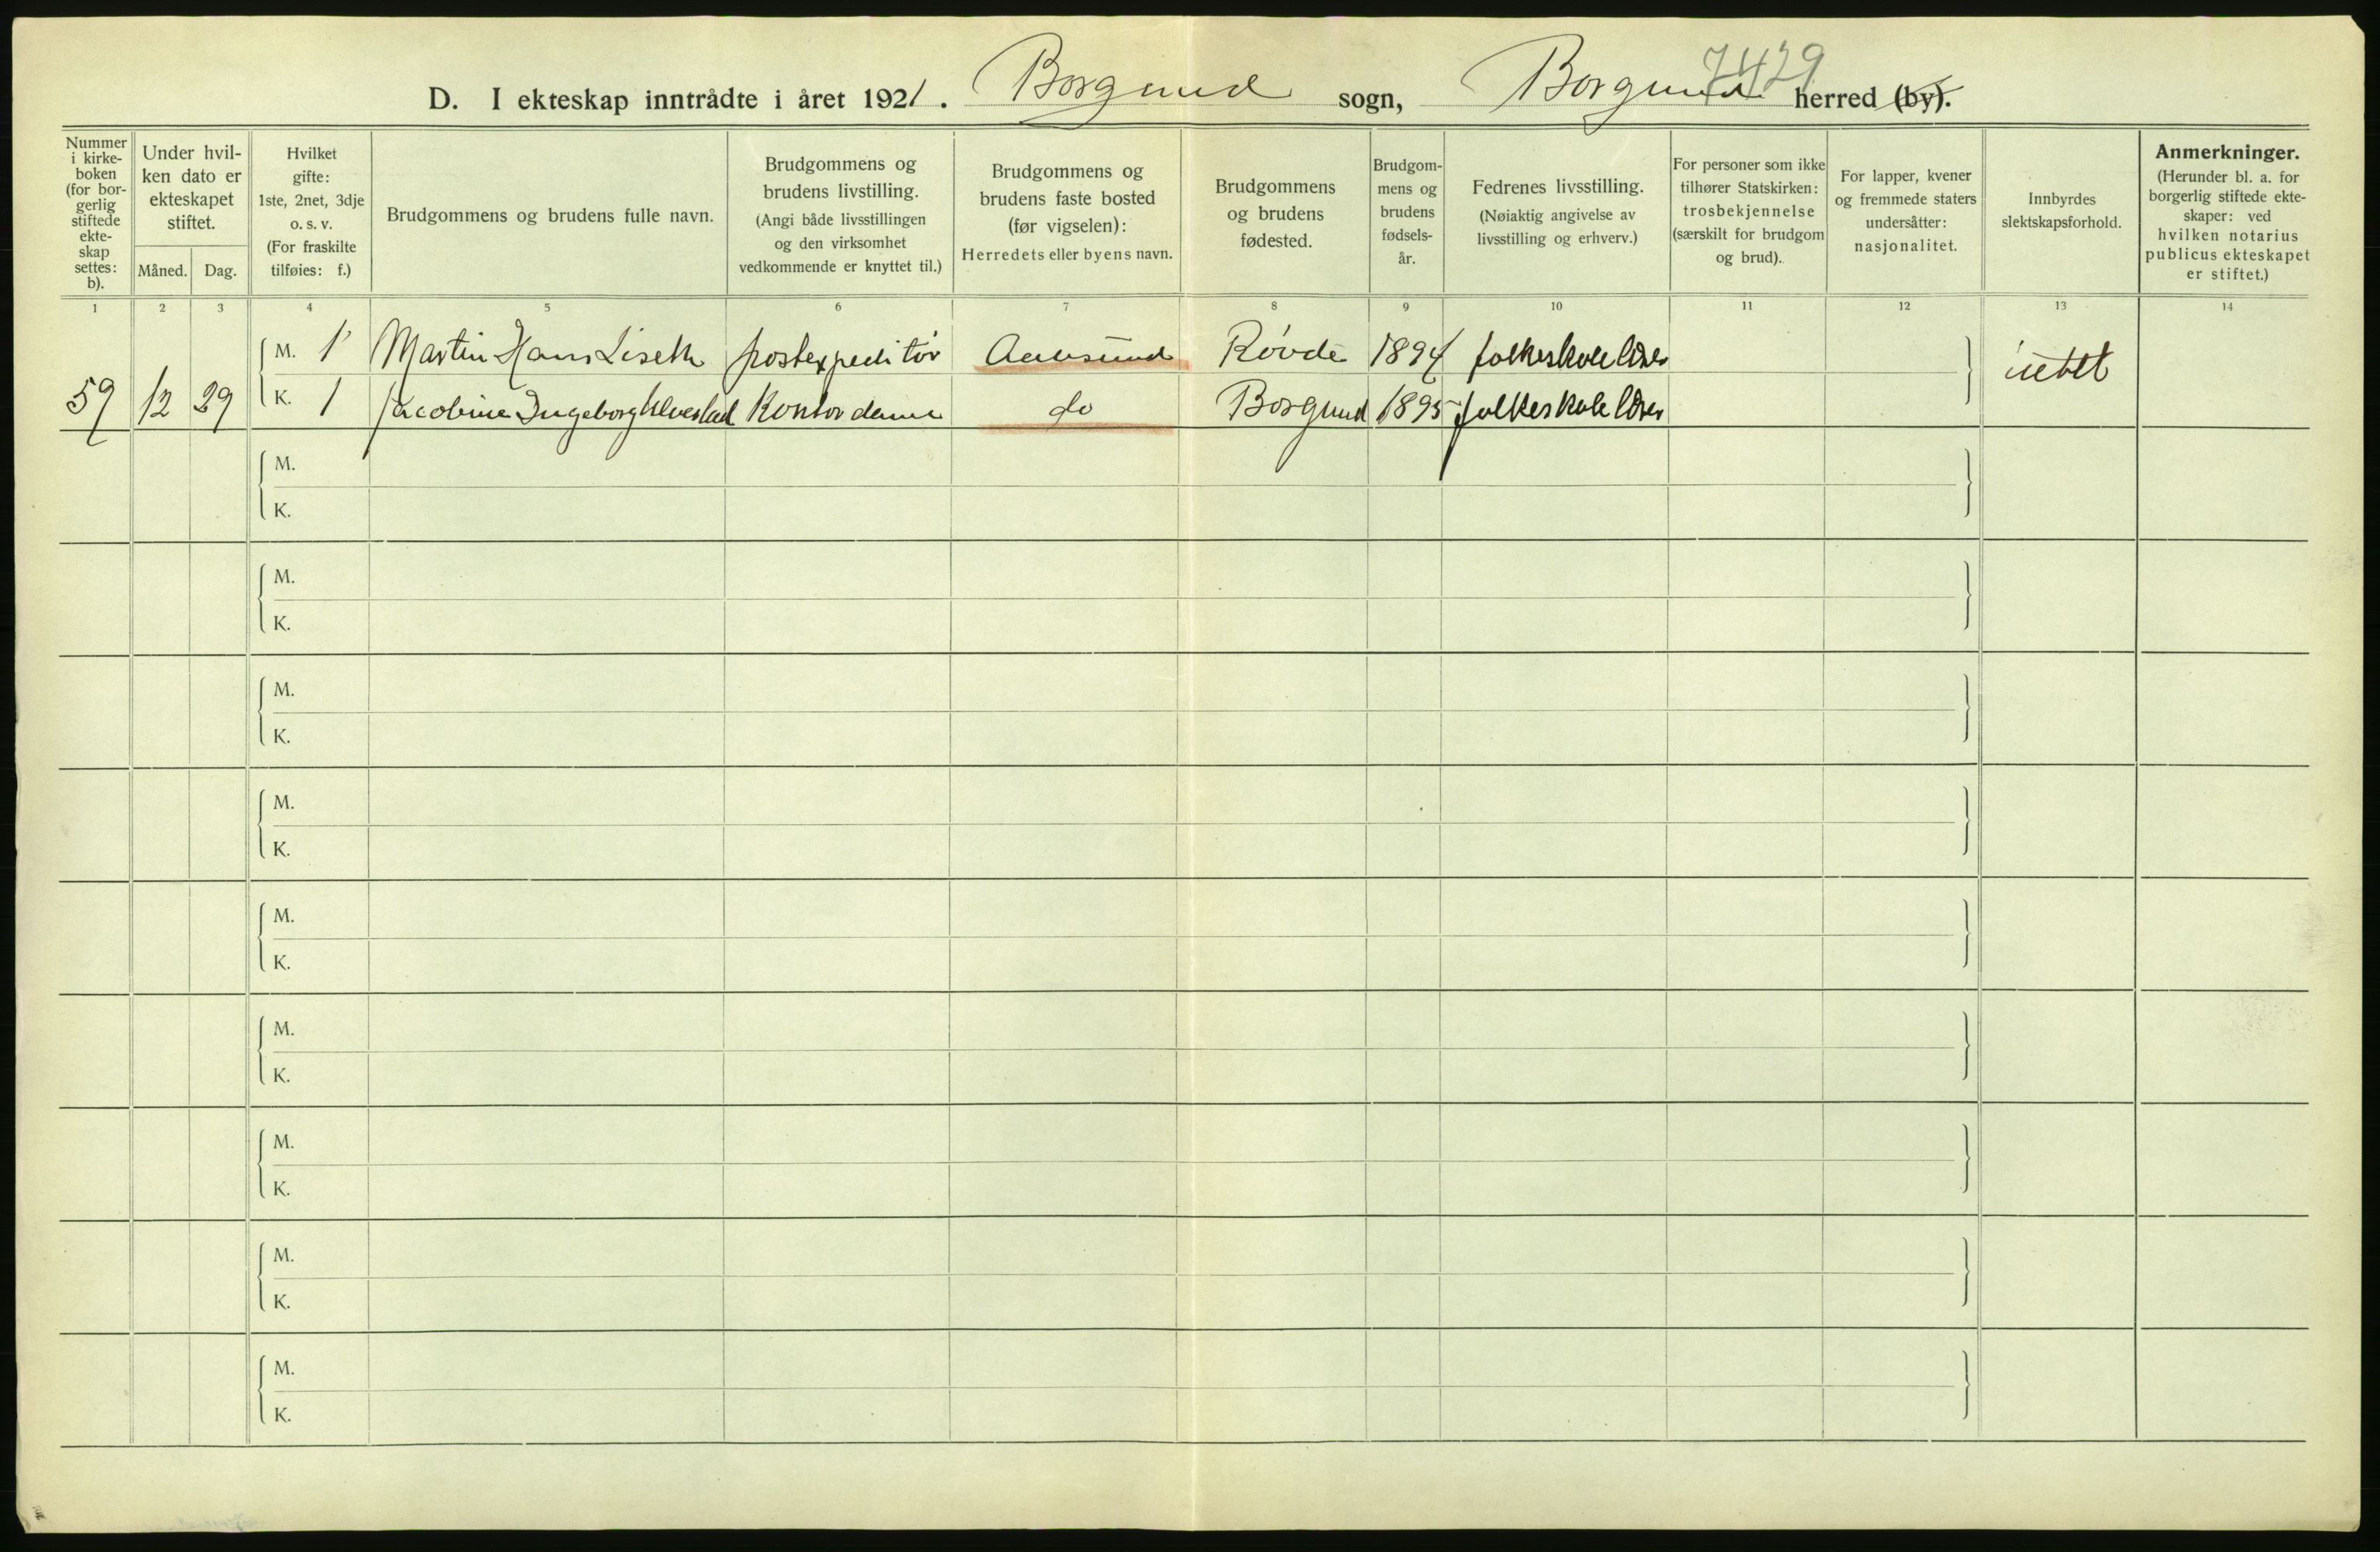 7429
D. I ekteskap inntrådte i året 1921. Borgund sogn, Borgund herred (by).
Nummer i kirke-boken (for bor-gerlig stiftede ekte-skap settes: b).
Under hvil-ken dato er ekteskapet stiftet.
Måned. Dag.
Hvilket gifte: 1ste, 2net, 3dje o. s. v. (For fraskilte tilføies: f.)
Brudgommens og brudens fulle navn.
Brudgommens og brudens livstilling. (Angi både livsstillingen og den virksomhet vedkommende er knyttet til.)
Brudgommens og brudens faste bosted (før vigselen): Herredets eller byens navn.
Brudgommens og brudens fødested.
Brudgom-mens og brudens fødsels-år.
Fedrenes livsstilling. (Nøiaktig angivelse av livsstilling og erhverv.)
For personer som ikke tilhører Statskirken: trosbekjennelse (særskilt for brudgom og brud).
For lapper, kvener og fremmede staters undersåtter: nasjonalitet.
Innbyrdes slektskapsforhold.
Anmerkninger. (Herunder bl. a. for borgerlig stiftede ekte-skaper: ved hvilken notarius publicus ekteskapet er stiftet.)
1 2 3 4 5 6 7 8 9 10 11 12 13 14
M. 1 Martin Hans Liseth postexpeditør Aalesund Røvde 1894 folkeskolelærer
59 12 29 K. 1 Jacobine Ingeborg Ulvestad Kontordame do Borgund 1895 folkeskolelærer intet
M.
K.
M.
K.
M.
K.
M.
K.
M.
K.
M.
K.
M.
K.
M.
K.
M.
K.